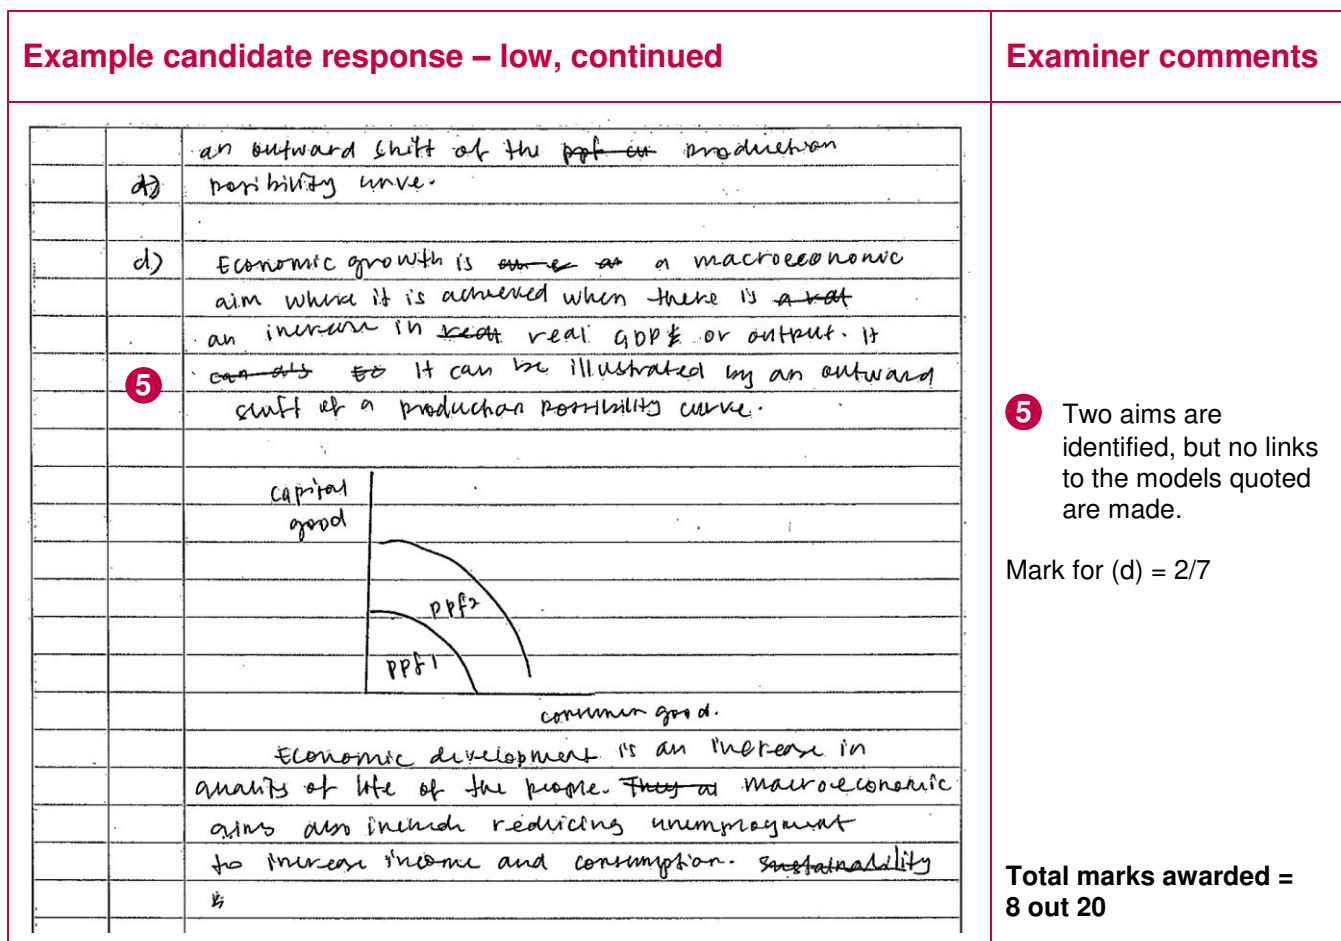 Example candidate response – low, continued
Examiner comments
an outward shift of the ppf cu production
d) posibility curve.
d) Economic growth is a macroeconomic
aim where it is achieved when there is a rat
an increase in real real GDP or output. It
can als It can be illustrated by an outward
5
shift of a production possibility curve.
capital
good
ppf2
ppf1
consumer good.
Economic development is an increase in
quality of life of the people. They a macroeconomic
aims also include reducing unemployment
to increase income and consumption. sustainability
is
5 Two aims are
identified, but no links
to the models quoted
are made.
Mark for (d) = 2/7
Total marks awarded =
8 out 20